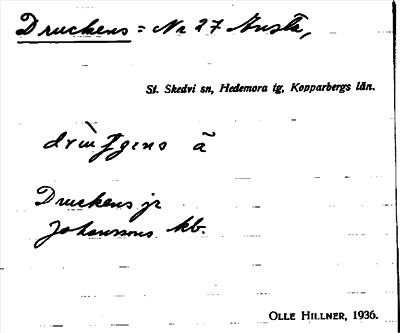 Druckens = Nr 27 Knsta,
St. Skedvi sn, Hedemora tg, Kopparbergs län.
ā
Druckens jr
Johanssons kb.
OLLE HILLNER, 1936.